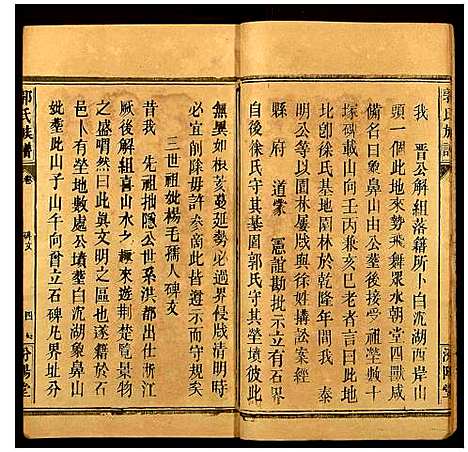 郭氏族譜
汾陽堂
我 晋公解組落籍所卜白沉湖西岸山
頭一個此地來勢飛舞眾水朝堂四獸咸
備名曰象鼻山由公塋後接 塋數十
塚碑載山向壬丙亥巳老者言曰此地
北卽徐氏基地園林於乾隆年間我 泰
明公等以園林屢戕與徐姓搆訟案經
縣 府 道蒙 憲諠勘批示立有石界
自後徐氏守其基園郭氏守其塋墳彼此
無異如椒亥蔓延勢必過界侵戕清明時
必宜削除毋許參商此皆遵示而守規矣
三世祖妣楊毛孺人碑文
昔我 先祖拙隱公世系洪都出仕浙江
厥後解組喜山水之 概來遊荆楚覽景物
之盛喟然曰此與文明之區也遂籍於
邑卜有坐地數處公墳塟白沉湖象鼻山
妣塟此山子山午向酉立石碑凡界址分
郭氏族譜
卷
碑文
四七
汾陽堂